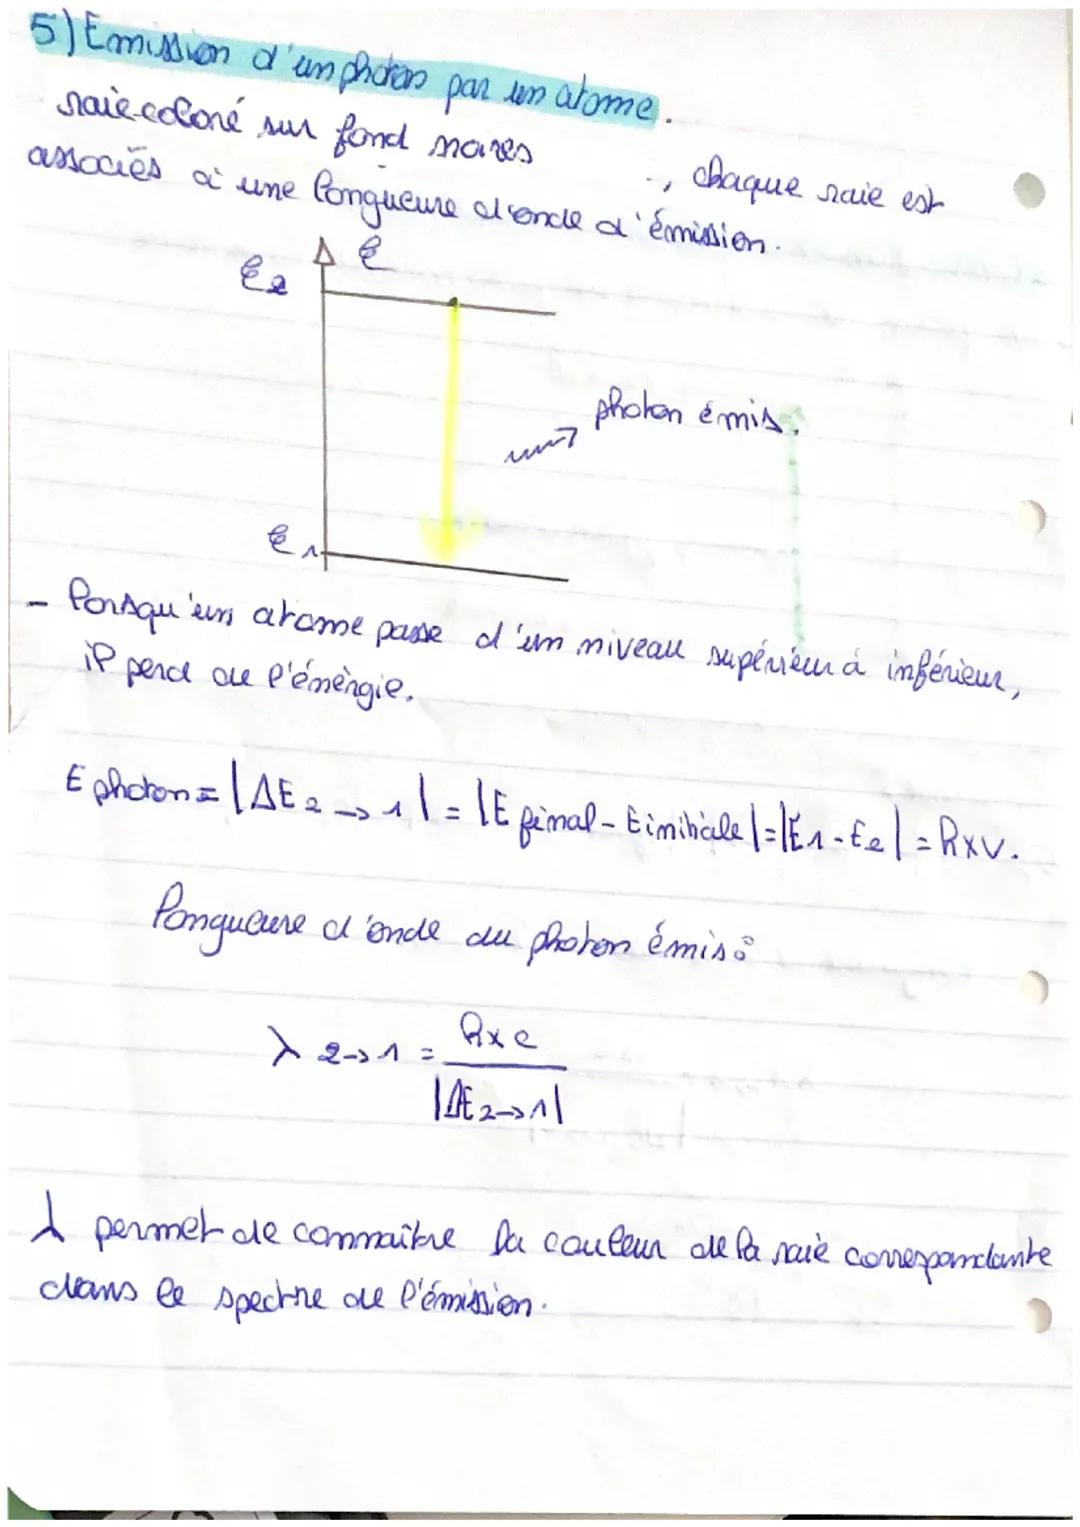 5) Emission d'un photon par un atome.
raie coloré sur fond noires -, chaque raie est
associés à une longueure d'onde d'émission.
E
E2
photon émis.
E1
- lorsqu'un atome passe d'un niveau supérieur à inférieur,
il perd de l'énèrgie.
E photon = |ΔE 2 → 1| = |E final - E initiale| = |E1 - E2| = h x ν.
longueure d'onde du photon émis :
λ 2→1 = h x c
|ΔE 2→1|
λ permet de connaître la couleur de la raie correspondante
dans le spectre de l'émission.